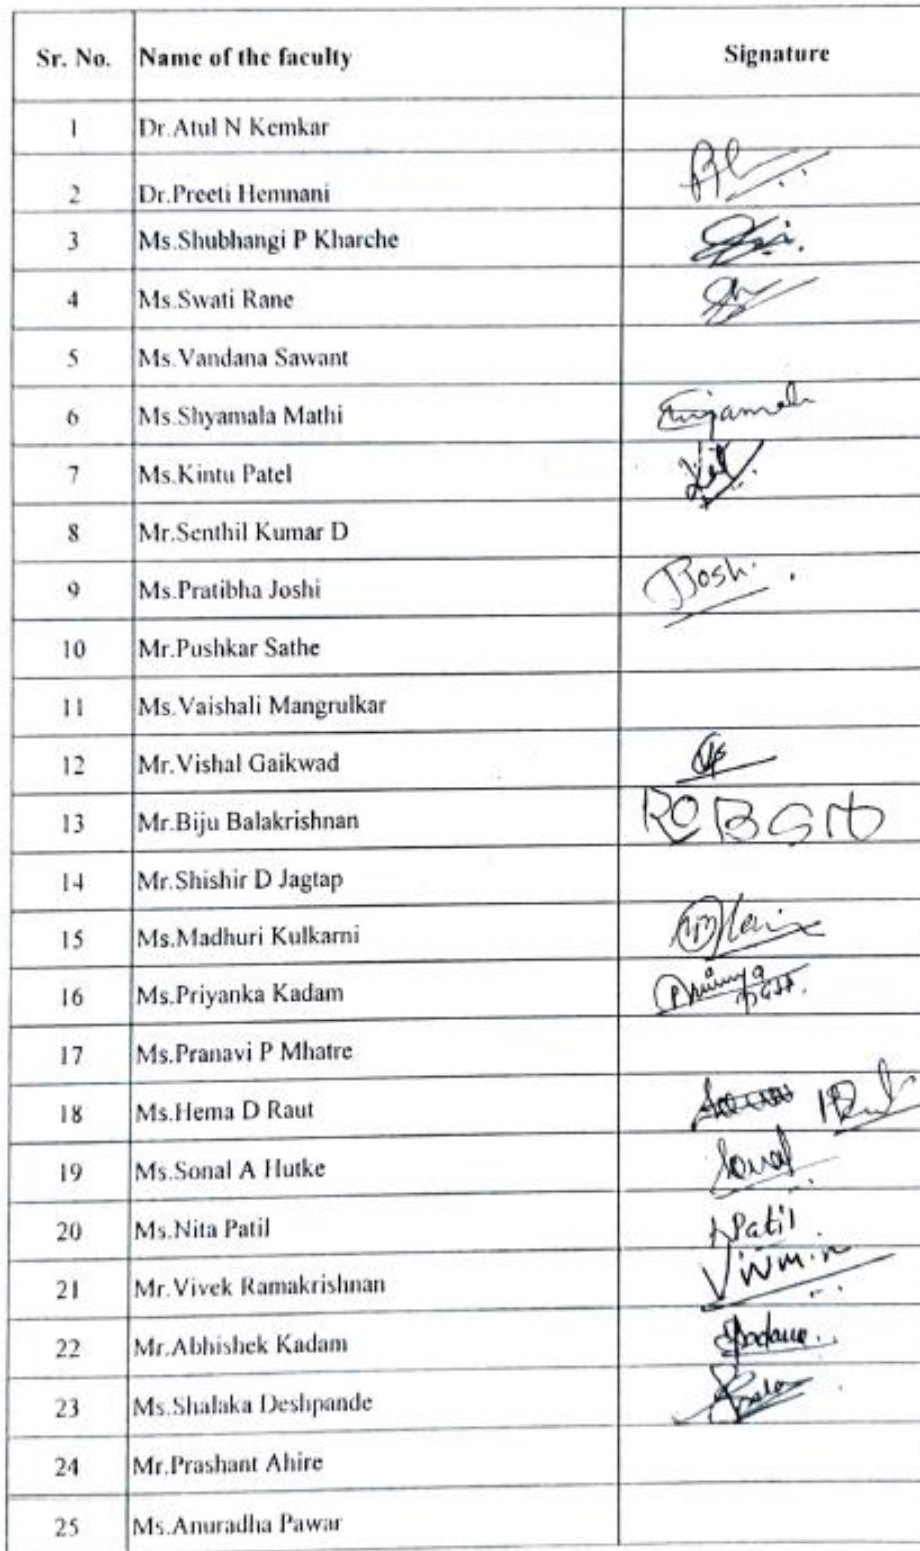 Sr. No. Name of the faculty Signature
1 Dr.Atul N Kemkar
2 Dr.Preeti Hemnani
3 Ms.Shubhangi P Kharche
4 Ms.Swati Rane
5 Ms.Vandana Sawant
6 Ms.Shyamala Mathi
7 Ms.Kintu Patel
8 Mr.Senthil Kumar D
9 Ms.Pratibha Joshi
10 Mr.Pushkar Sathe
11 Ms.Vaishali Mangrulkar
12 Mr.Vishal Gaikwad
13 Mr.Biju Balakrishnan
14 Mr.Shishir D Jagtap
15 Ms.Madhuri Kulkarni
16 Ms.Priyanka Kadam
17 Ms.Pranavi P Mhatre
18 Ms.Hema D Raut
19 Ms.Sonal A Hutke Sonal
20 Ms.Nita Patil Patil
21 Mr.Vivek Ramakrishnan
22 Mr.Abhishek Kadam
23 Ms.Shalaka Deshpande
24 Mr.Prashant Ahire
25 Ms.Anuradha Pawar